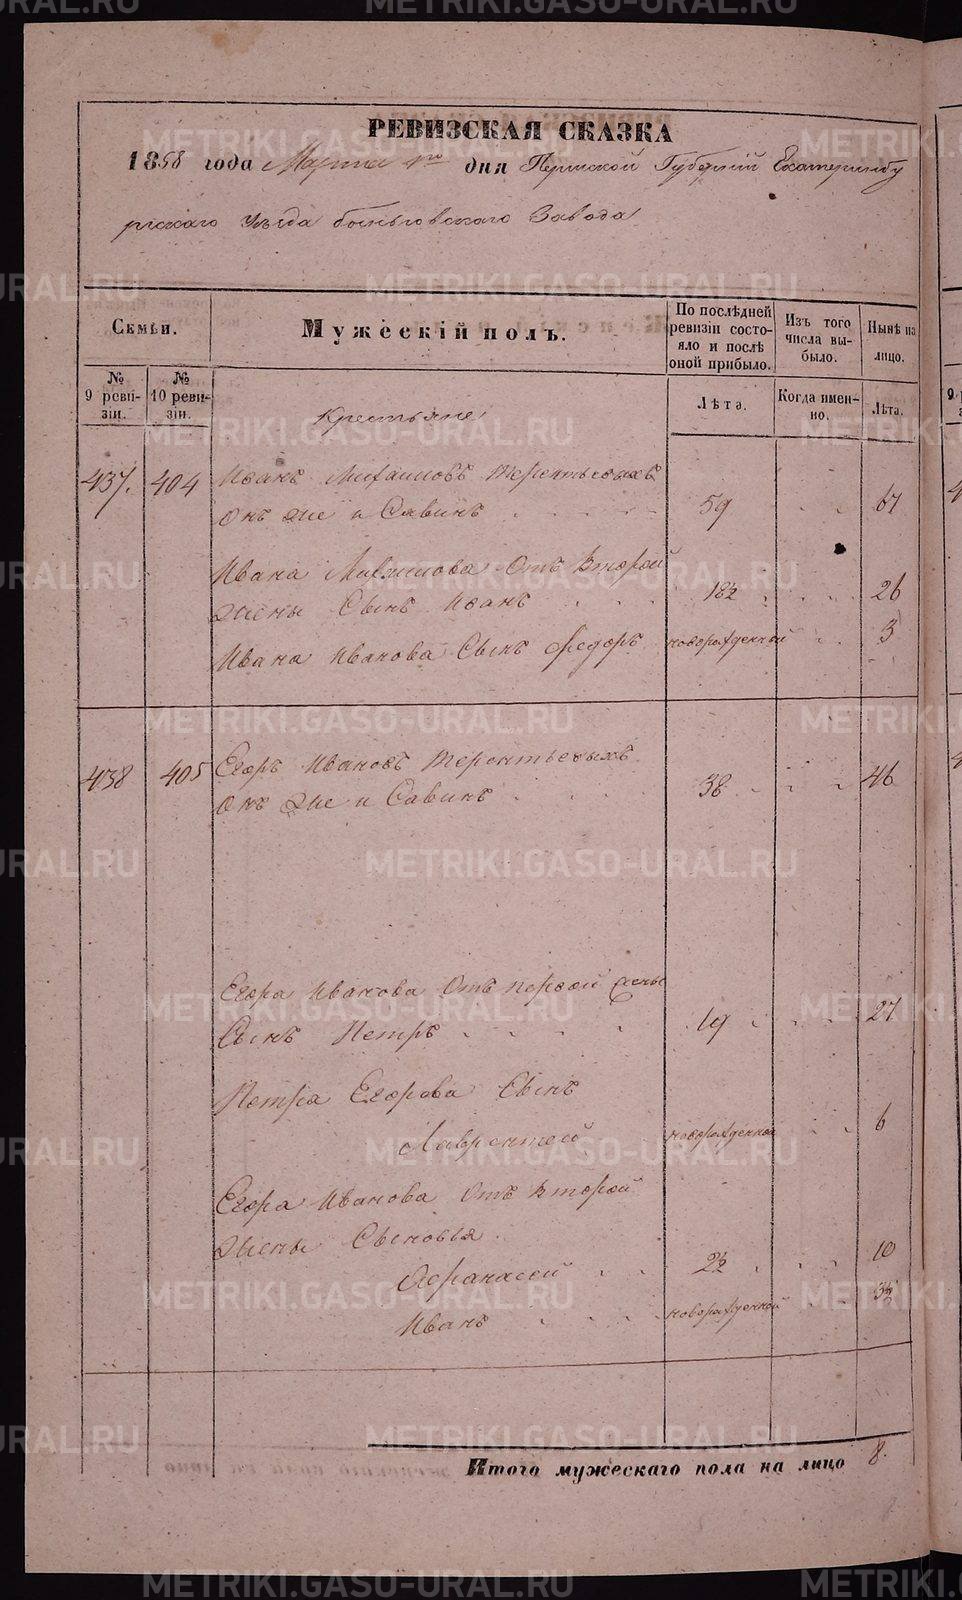 РЕВИЗСКАЯ СКАЗКА
1858 года Марта 1го дня Пермской Губернiи Екатеринбу
ргскаго Уѣзда Боньговскаго Завода
Семьи.
Мужескій полъ.
По послѣдней ревизіи состояло и послѣ оной прибыло.
Изъ того числа выбыло.
Нынѣ на лицо.
№ 9 ревизіи.
№ 10 ревизіи.
Крестьяне
Лѣта.
Когда именно.
Лѣта.
437. 404 Иванъ Михаиловъ Терентьевыхъ
Онъ же и Савинъ 59 67
Ивана Михаилова Отъ Второй
Жены Сынъ Иванъ 18½ 26
Ивана Иванова Сынъ Федоръ новорожденной 3
438 405 Егоръ Ивановъ Терентьевыхъ
Онъ же и Савинъ 38 46
Егора Иванова Отъ первой жены
Сынъ Петръ 19 27
Петра Егорова Сынъ
Лаврентей новорожденной 6
Егора Иванова Отъ Второй
Жены Сыновья
Афанасей 2½ 10
Иванъ новорожденной 3½
Итого мужескаго пола на лицо 8.
METRIKI.GASO-URAL.RU